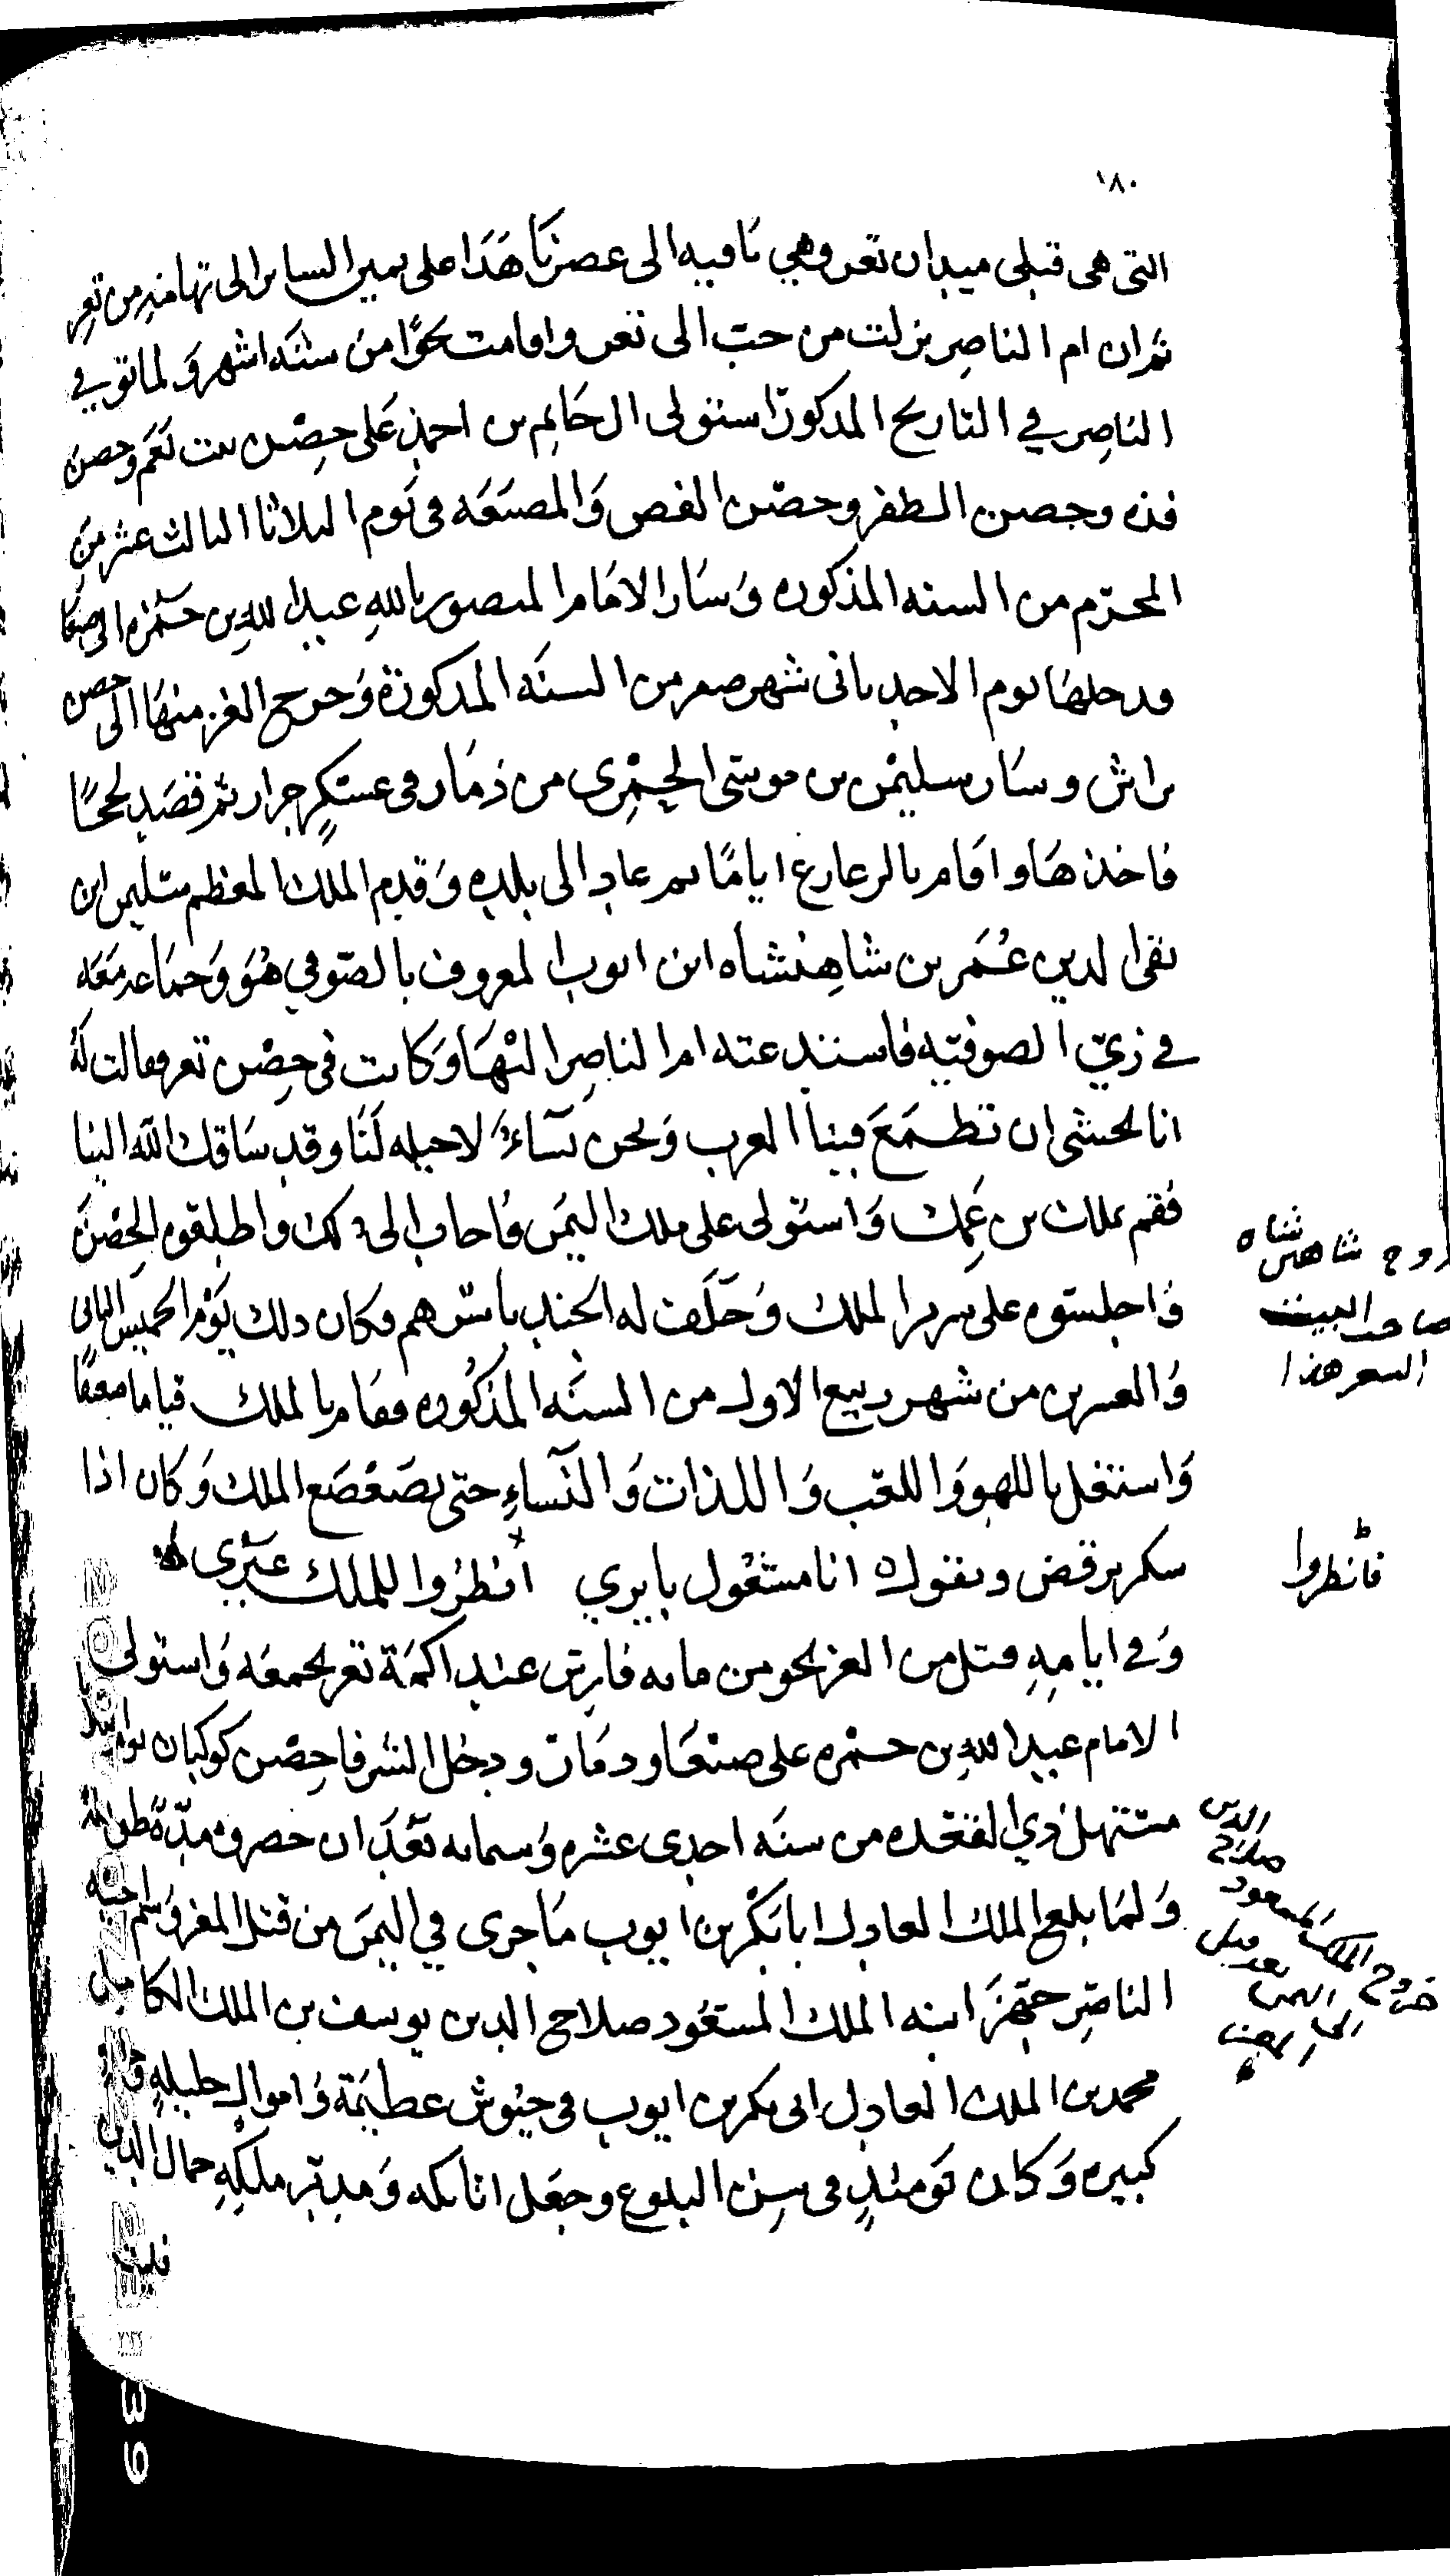 ١٨٠
التى هى قبلى ميدان تعز وهي باقيه الى عصرنا هَذا على يمين الساير الى تهامه من تعز
ثم ان ام الناصِر نزلت من حب الى تعز واقامت نحوًا من ستَه اشهر وَلما توفي
الناصِر في التاريخ المذكور استولى ال حَاتم بن احمد عَلى حِصْن بيت نَعَم وحصن
فده وحصن الظفر وحصْن الفص وَالمصنَعَه في يَوم الثلاثا الثالث عشر من
المحرّم من السنه المذكوره وَسَار الامَام المنصور باللهِ عبد اللهِ بن حَمْزه الى صنعَا
ودخلهَا يوم الاحد ثانى شهر صفر من السنَه المذكورَة وَخرج الغز منهَا الى حصن
براش وسَار سليمن بن موسى الحمْزِى من ذمَار فى عسْكرٍ جرار ثم قصَد لحجًا
فاخذهَا واقَام بالرعارع ايامًا ثم عاد الى بلده وَقدِم الملك المعظم سليمن ابن
تقى الدين عُمَر بن شاهِنشاه ابن ايوب المعروف بالصّوفي هُوَ وَجمَاعه مَعَه
في زيّ الصوفيّه فاستدعته ام الناصِر اليْهَا وَكانت في حِصْن تعز وقالت لَهُ
انا نخشى ان تطمَعَ فينا العرب وَنحن نسَآءٌ لا حيله لَنَا وقد سَاقك الله الينا
فقم بملك بن عَمِك وَاستولى على ملك اليمَن فاجاب الى ذلك واطلقوه الحِصْن
وَاجلسوه على سرير الملك وَحَلَف له الجند باسْرهم وكان ذلك يَوْم الخميس الثانى
وَالعشرين من شهر ربيع الاول من السنَه المذكُوره فقَام بالملك قياما ضعيفًا
وَاشتغل باللهو وَاللعب وَاللذات وَالنسآءِ حتى تضَعْضَع الملك وَكان اذا
سكر يرقص ويقول ه انا مشغول بايري أنظرُوا للملك غيْرِي
وَفى ايامِهِ قتل من الغز نحو من مايه فارِس عند اكمَة تعز بجمعَه وَاستولى
الامام عبد اللهِ بن حمْزه على صنعَا وذمَار ودخل الشرفا حِصْن كوكبان يوم
مستهل ذي القعْده من سنَه احدى عشره وَستمايه بَعْدَ ان حصروه مدّة
وَلمَا بلغ الملك العادل ابا بَكْر بن ايوب مَا جرى في اليمَن من قتل الغز وَسم اخيه
الناصِر جهّزَ ابنه الملك المسعُود صلاح الدين يوسف بن الملك الكامل
محمد بن الملك العادل ابى بكر بن ايوب فى جيُوش عظيمَة وَاموال جليلهٍ
كبيره وَكان يَومئذٍ فى سِن البلوغ وجعَل اتابكه وَمدبّر ملكِهِ جمال الدين
فليت
شاهنشاه
صاحب البيت
الشعر هذا
فانظروا
الدين
صلاح
المسعود
خروج الملك
بعد قتل
الى اليمن